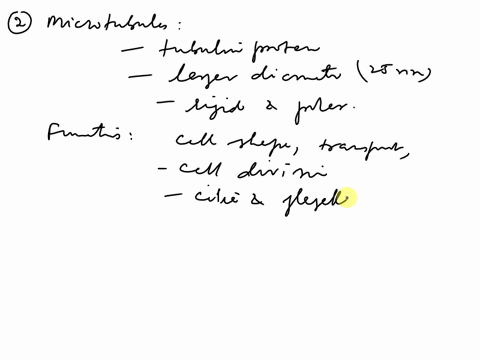 ② Microtubules :
— tubulin protein
— larger diameter (25 nm)
— rigid & polar.
Functions : cell shape, transport,
- cell division
— cilia & flagella